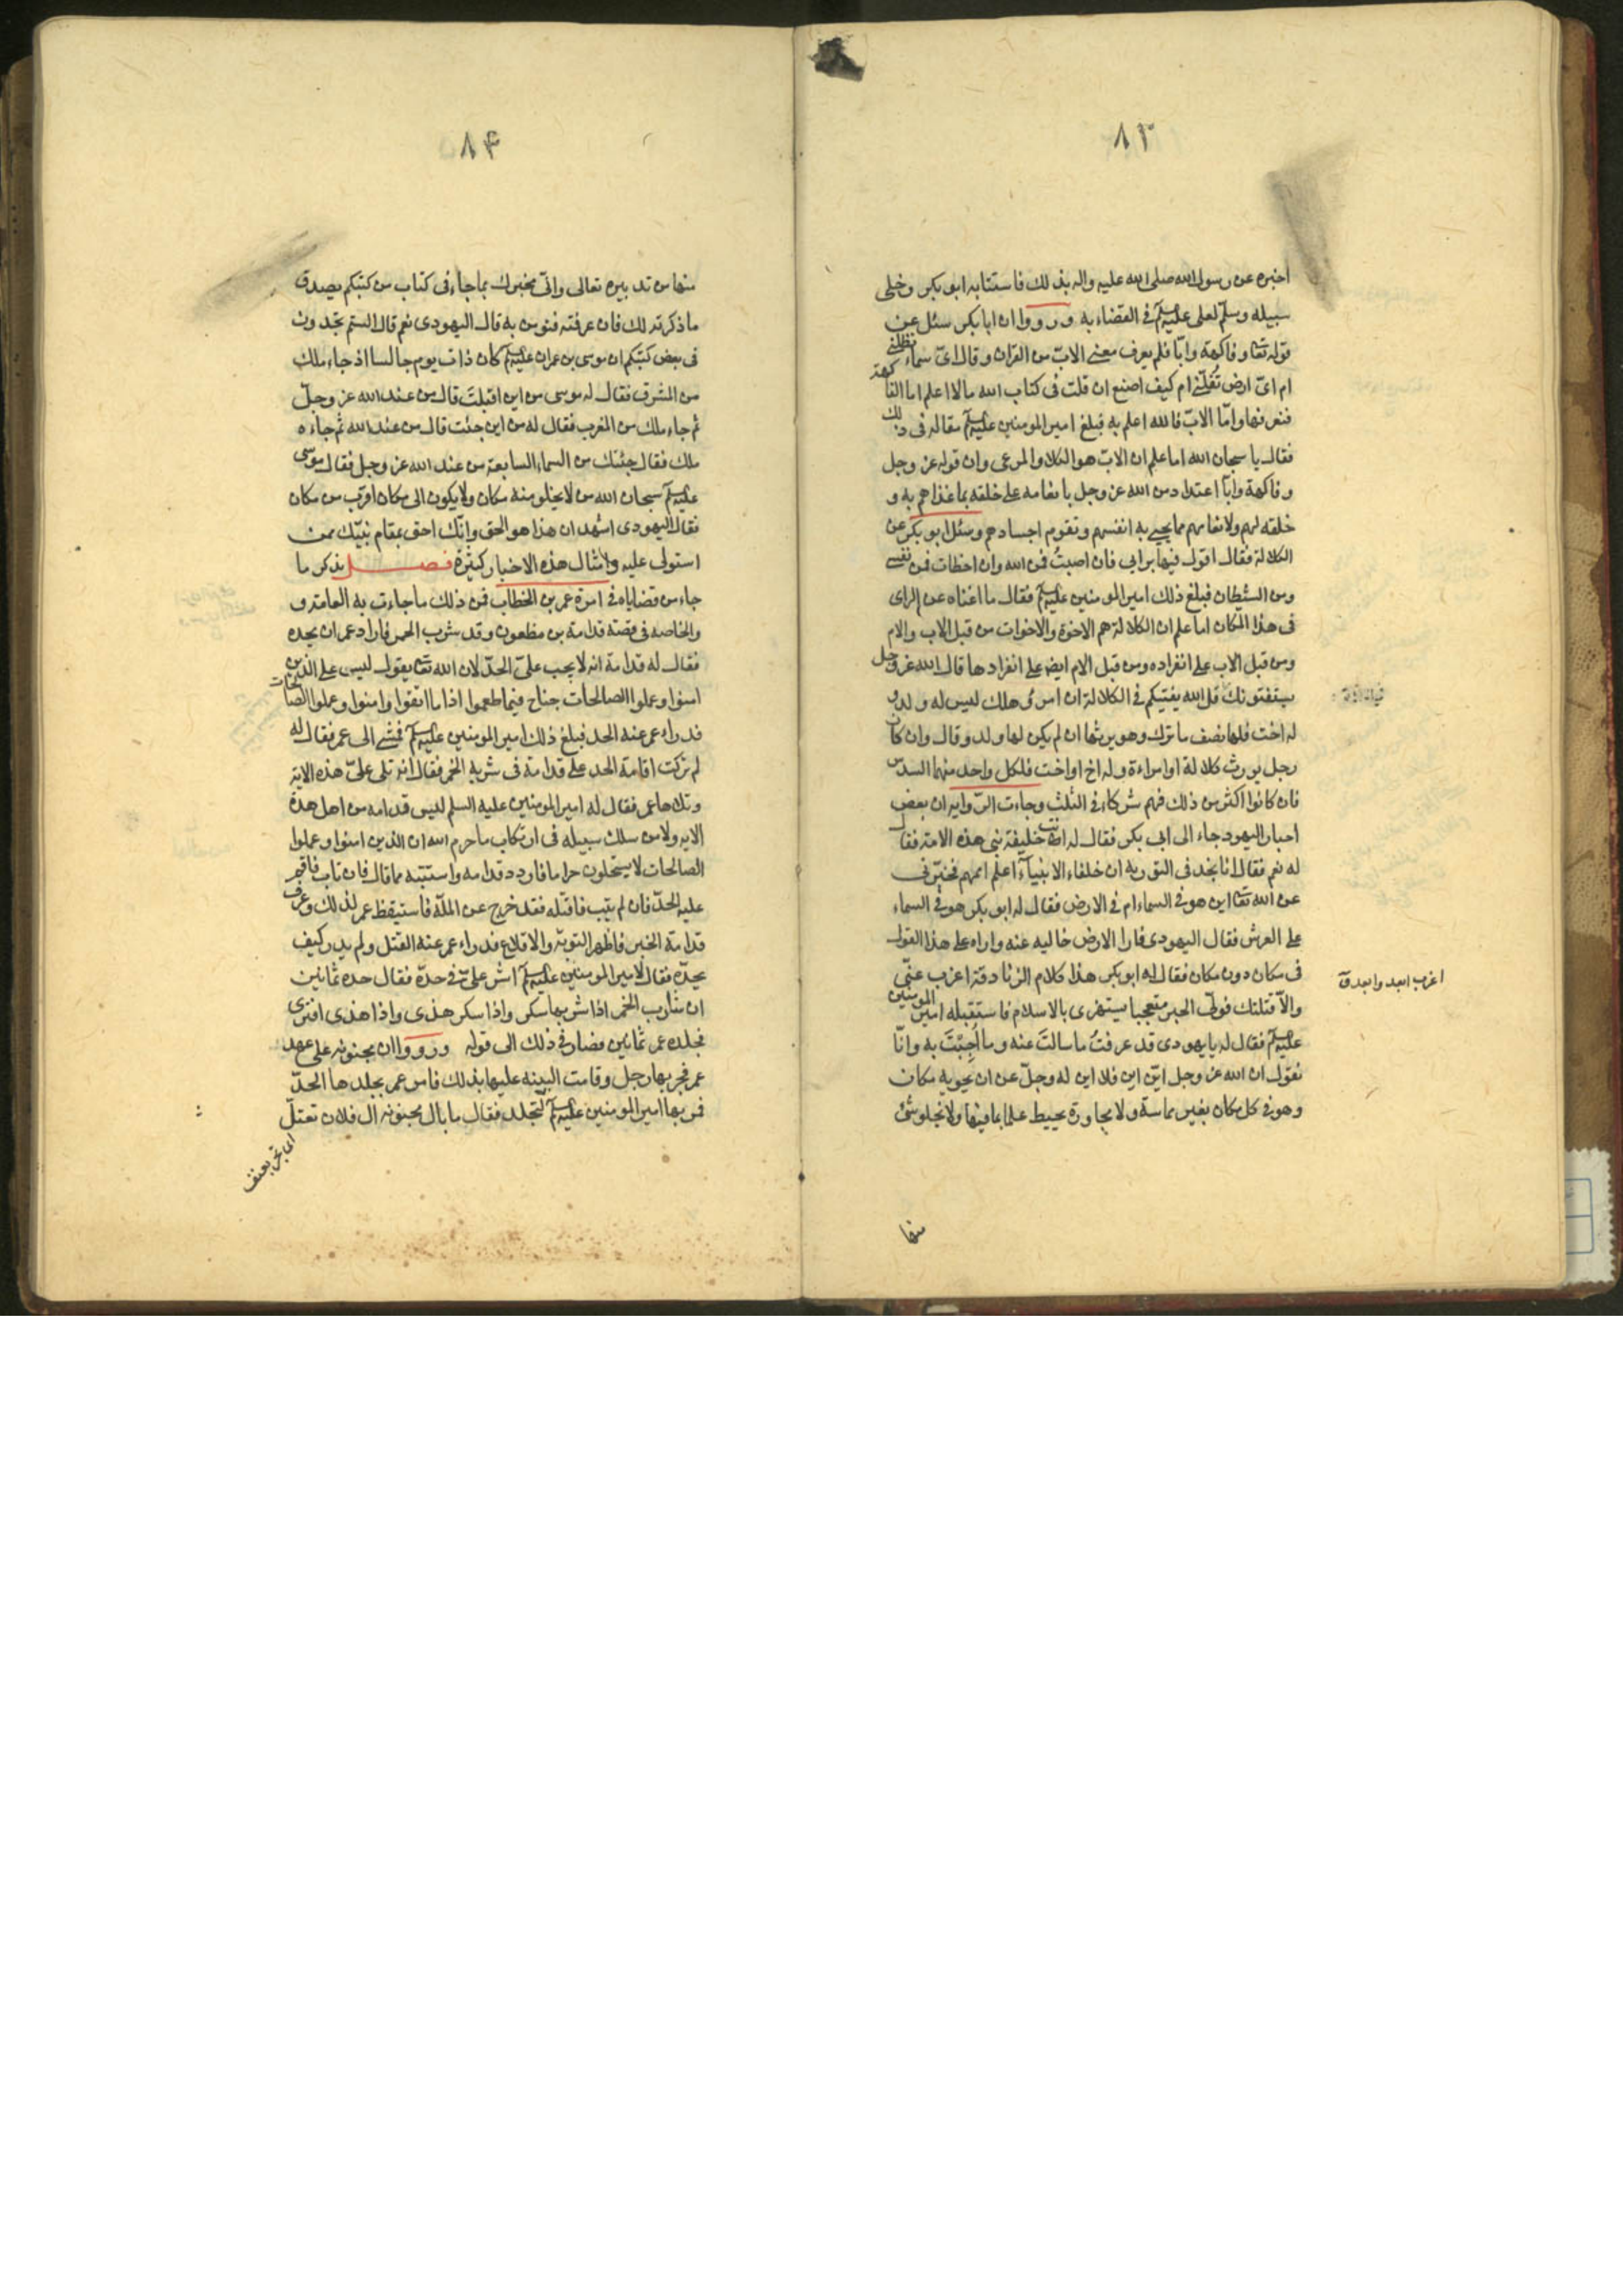 ٨٣
اخبره عن رسول الله صلى الله عليه واله بذلك فاستتابه ابو بكر وخلى
سبيله وسلّم لعلى عليه السلم في القضاء به ورووا ان ابا بكر سئل عن
قوله تعا وفاكهة وابّا فلم يعرف معنى الابّ من القران وقال ايّ سماء تظلّني
ام ايّ ارض تُقلّني ام كيف اصنع ان قلت في كتاب الله ما لا اعلم اما الفاكهة
فنعرفها وامّا الابّ فالله اعلم به فبلغ امير المومنين عليه السلم مقاله فى ذلك
فقال يا سبحان الله اما علم ان الابّ هو الكلاء والمرعى وان قوله عز وجل
وفاكهة وابّا اعتداد من الله عز وجل بانعامه على خلقه بما غذاهم به و
خلقه لهم ولانعامهم مما يحيى به انفسهم وتقوم اجسادهم وسئل ابو بكر عن
الكلالة فقال اقول فيها برايى فان اصبتُ فمن الله وان اخطات فمن نفسى
ومن الشيطان فبلغ ذلك امير المومنين عليه السلم فقال ما اغناه عن الراى
فى هذا المكان اما علم ان الكلالة هم الاخوة والاخوات من قبل الاب والام
ومن قبل الاب على انفراده ومن قبل الام ايضا على انفرادها قال الله عز وجل
يستفتونك قل الله يفتيكم في الكلالة ان امرؤ هلك ليس له ولد و
له اخت فلها نصف ما ترك وهو يرثها ان لم يكن لها ولد وقال وان كان
رجل يورث كلالة او امراءة وله اخ او اخت فلكل واحد منهما السدس
فان كانوا اكثر من ذلك فهم شركاء في الثلث وجاءت الرّوايه ان بعض
احبار اليهود جاء الى ابى بكر فقال له انت خليفة نبى هذه الامة فقال
له نعم فقال انا نجد فى التوريه ان خلفاء الانبياء اعلم اممهم فخبّرنى
عن الله تعا اين هو في السماء ام في الارض فقال له ابو بكر هو في السماء
على العرش فقال اليهودى فارا الارض خاليه عنه واراه على هذا القول
فى مكان دون مكان فقال له ابو بكر هذا كلام الزنادقة اعزب عنّى
والاّ قتلتك فولّى الحبر متعجبا يستهزى بالاسلام فاستقبله امير المومنين
عليه السلم فقال له يا يهودى قد عرفتُ ما سالتَ عنه وما اُجِبْتَ به وانّا
نقول ان الله عز وجل ايّن الاين فلا اين له وجلّ عن ان يحويه مكان
وهو في كل مكان بغير مماسة ولا مجاورة يحيط علما بما فيها ولا يخلو شئ
اعزب ابعد وابعدته
منها
٨٤
منها من تدبيره تعالى وانّى مخبرك بما جاء فى كتاب من كتبكم يصدق
ما ذكرته لك فان عرفته فتومن به قال اليهودى نعم قال الستم تجدون
فى بعض كتبكم ان موسى بن عمران عليه السلم كان ذات يوم جالسا اذ جاء ملك
من المشرق فقال له موسى من اين اقبلتَ قال من عند الله عز وجلّ
ثم جاء ملك من المغرب فقال له من اين جئت قال من عند الله ثم جاءه
ملك فقال جئتك من السماء السابعة من عند الله عز وجل فقال موسى
عليه السلم سبحان الله من لا يخلو منه مكان ولا يكون الى مكان اقرب من مكان
فقال اليهودى اشهد ان هذا هو الحق وانّك احق بمقام نبيّك ممن
استولى عليه وامثال هذه الاخبار كثيرة فصل نذكر ما
جاء من قضاياه فى امرة عمر بن الخطاب فمن ذلك ما جاءت به العامة و
والخاصه فى قصة قدامة بن مظعون وقد شرب الخمر فاراد عمر ان يحده
فقال له قدامة انه لا يجب علىّ الحدّ لان الله تعا يقول ليس على الذين
امنوا وعملوا الصالحات جناح فيما طعموا اذا ما اتقوا وامنوا وعملوا الصالحات
فدراء عمر عنه الحد فبلغ ذلك امير المومنين عليه السلم فمشى الى عمر فقال له
لم تركت اقامة الحد على قدامة فى شربه الخمر فقال انه تلى علىّ هذه الاية
وتلاها عمر فقال له امير المومنين عليه السلم ليس قدامه من اهل هذه
الايه ولا من سلك سبيله فى ارتكاب ما حرم الله ان الذين امنوا وعملوا
الصالحات لا يستحلون حراما فاردد قدامه واستتبه مما قال فان تاب فاقم
عليه الحدّ فان لم يتب فاقتله فقد خرج عن الملّة فاستيقظ عمر لذلك وعرف
قدامة الخبر فاظهر التوبة والاقلاع فدراء عمر عنه القتل ولم يدر كيف
يحدّه فقال لامير المومنين عليه السلم اشر علىّ في حدّه فقال حده ثمانين
ان شارب الخمر اذا شربها سكر واذا سكر هذى واذا هذى افترى
فجلده عمر ثمانين فصار في ذلك الى قوله ورووا ان مجنونه على عهد
عمر فجر بها رجل وقامت البينه عليها بذلك فامر عمر بجلدها الحدّ
فمر بها امير المومنين عليه السلم لتجلد فقال ما بال مجنونه ال فلان تعتلّ
اى تجر بعنف